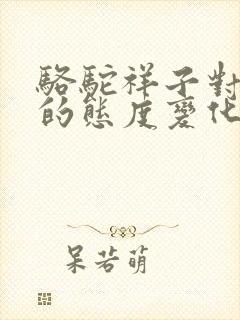 駱駝祥子對
的態度變化
呆若萌